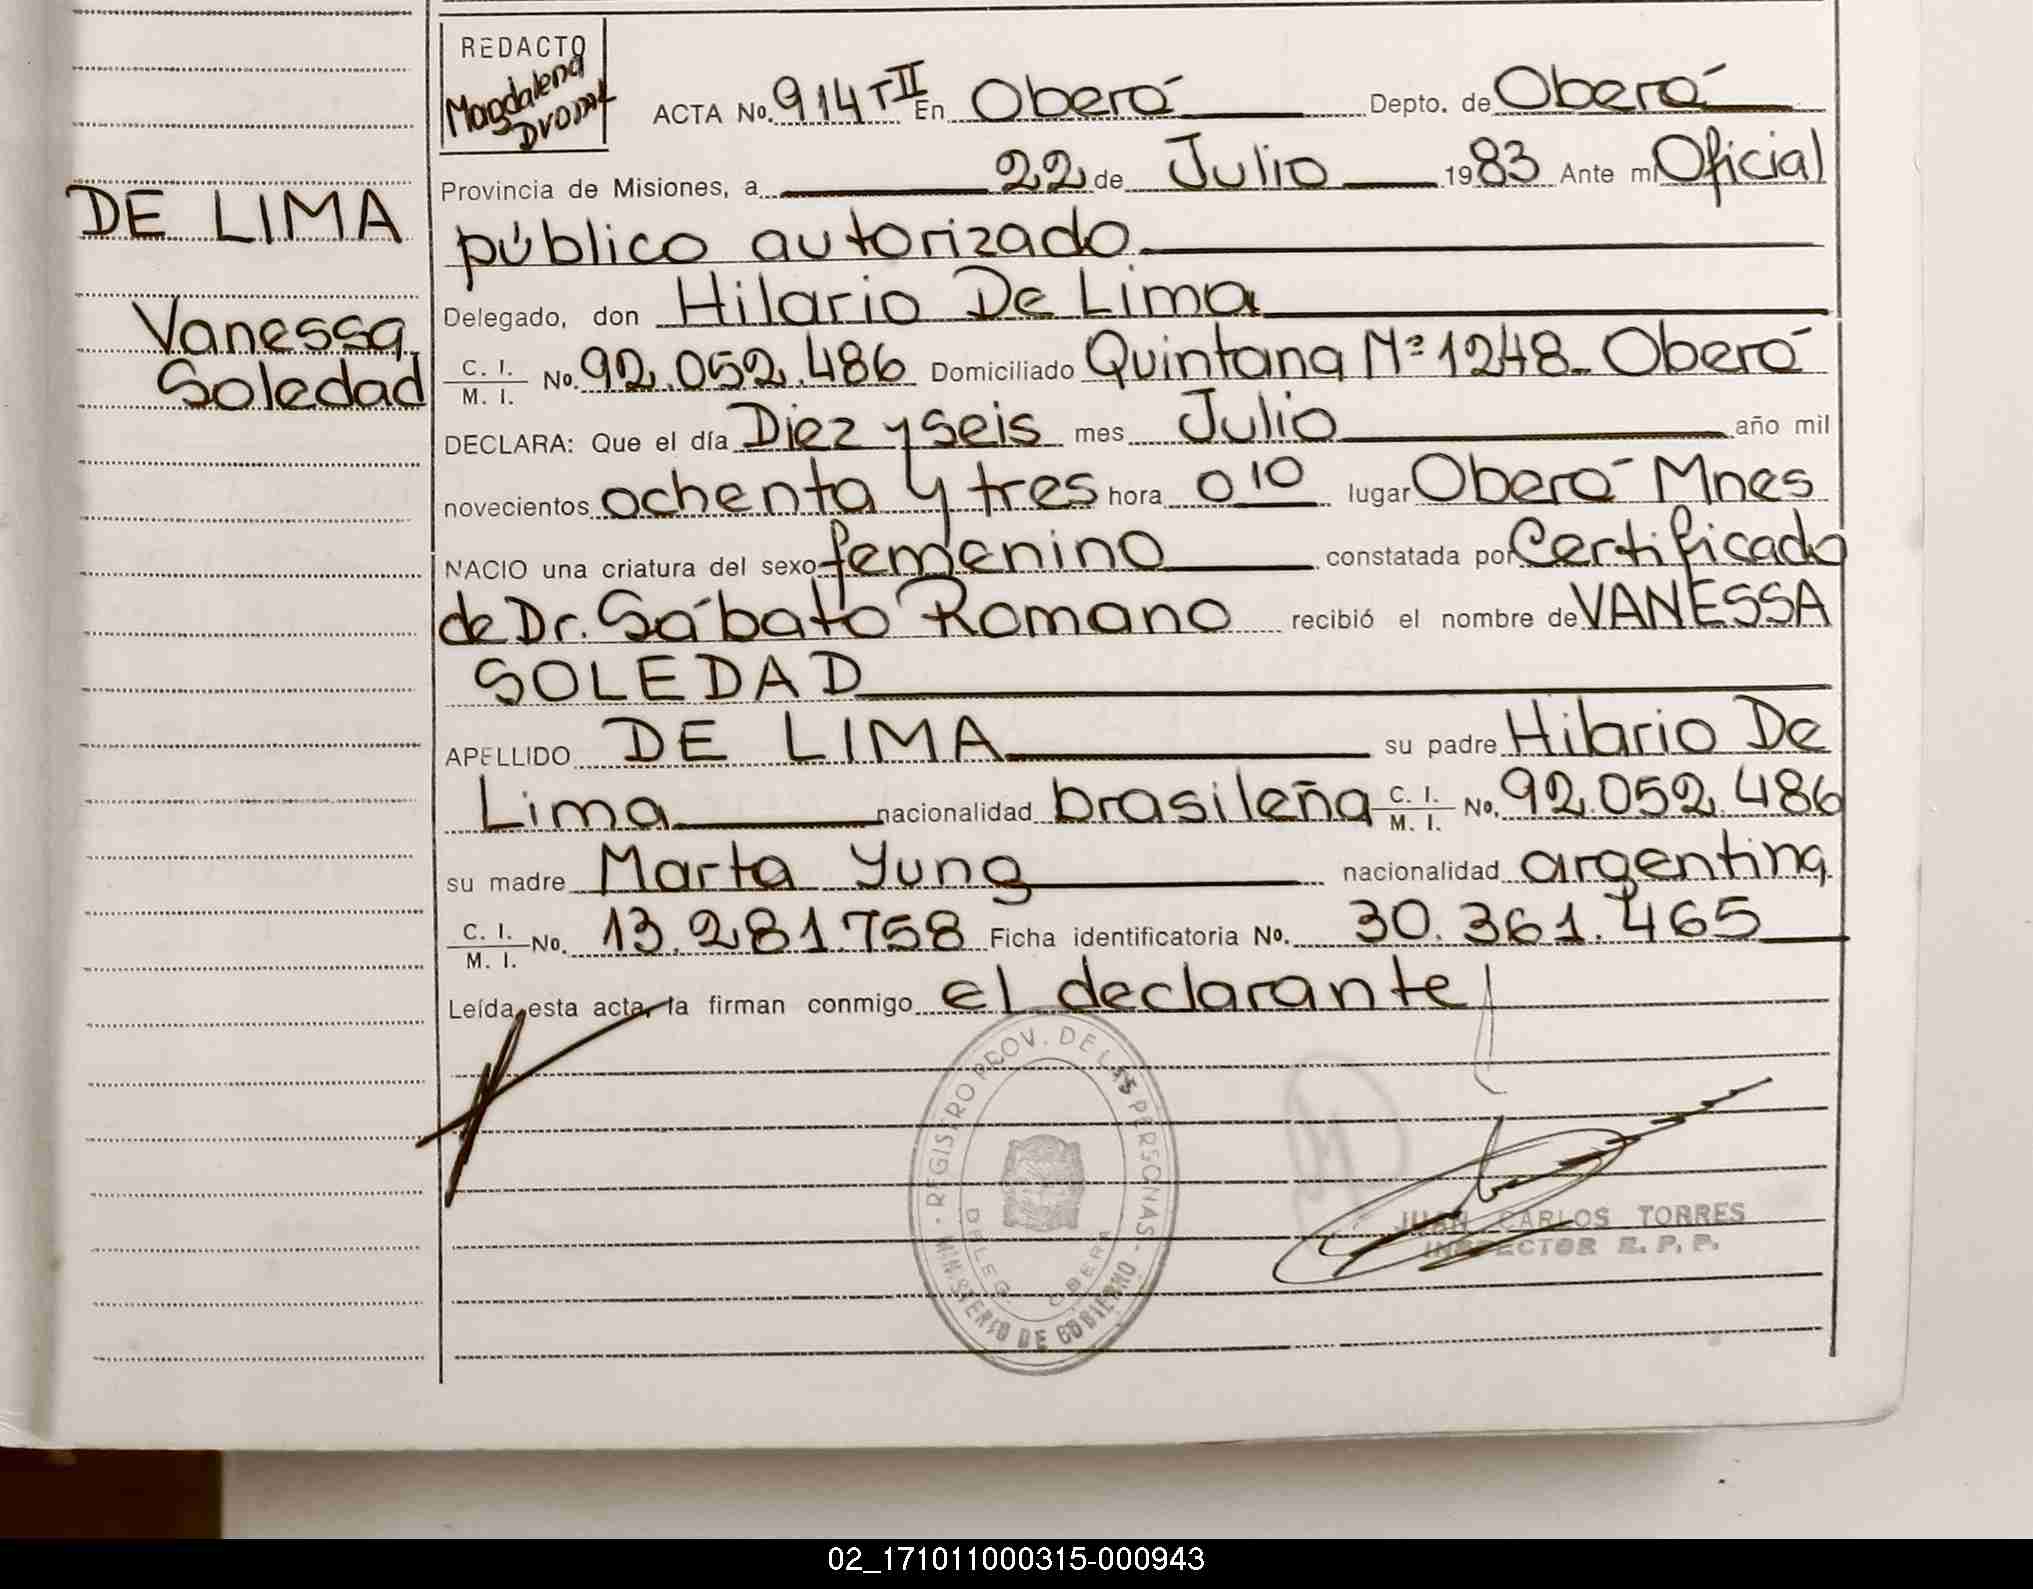 REDACTO
Magdalena
ACTA No. 914 T II En Oberá Depto. de Oberá
Provincia de Misiones, a 22 de Julio 1983 Ante mí Oficial
público autorizado
Delegado, don Hilario De Lima
C. I. / M. I. No. 92.052.486 Domiciliado Quintana Nº 1248 - Oberá
DECLARA: Que el día Diez y seis mes Julio año mil
novecientos ochenta y tres hora 0 10 lugar Oberá Mnes
NACIO una criatura del sexo femenino constatada por Certificado
de Dr. Sábato Romano recibió el nombre de VANESSA
SOLEDAD
APELLIDO DE LIMA su padre Hilario De
Lima nacionalidad brasileña C. I. / M. I. No. 92.052.486
su madre Marta Yung nacionalidad argentina
C. I. / M. I. No. 13.281.758 Ficha identificatoria No. 30.361.465
Leída esta acta, la firman conmigo el declarante
DE LIMA
Vanessa
Soledad
REGISTRO PROV. DE LAS PERSONAS - MINISTERIO DE GOBIERNO -
DELEG. OBERA
JUAN CARLOS TORRES
INSPECTOR R. P. P.
02_171011000315-000943